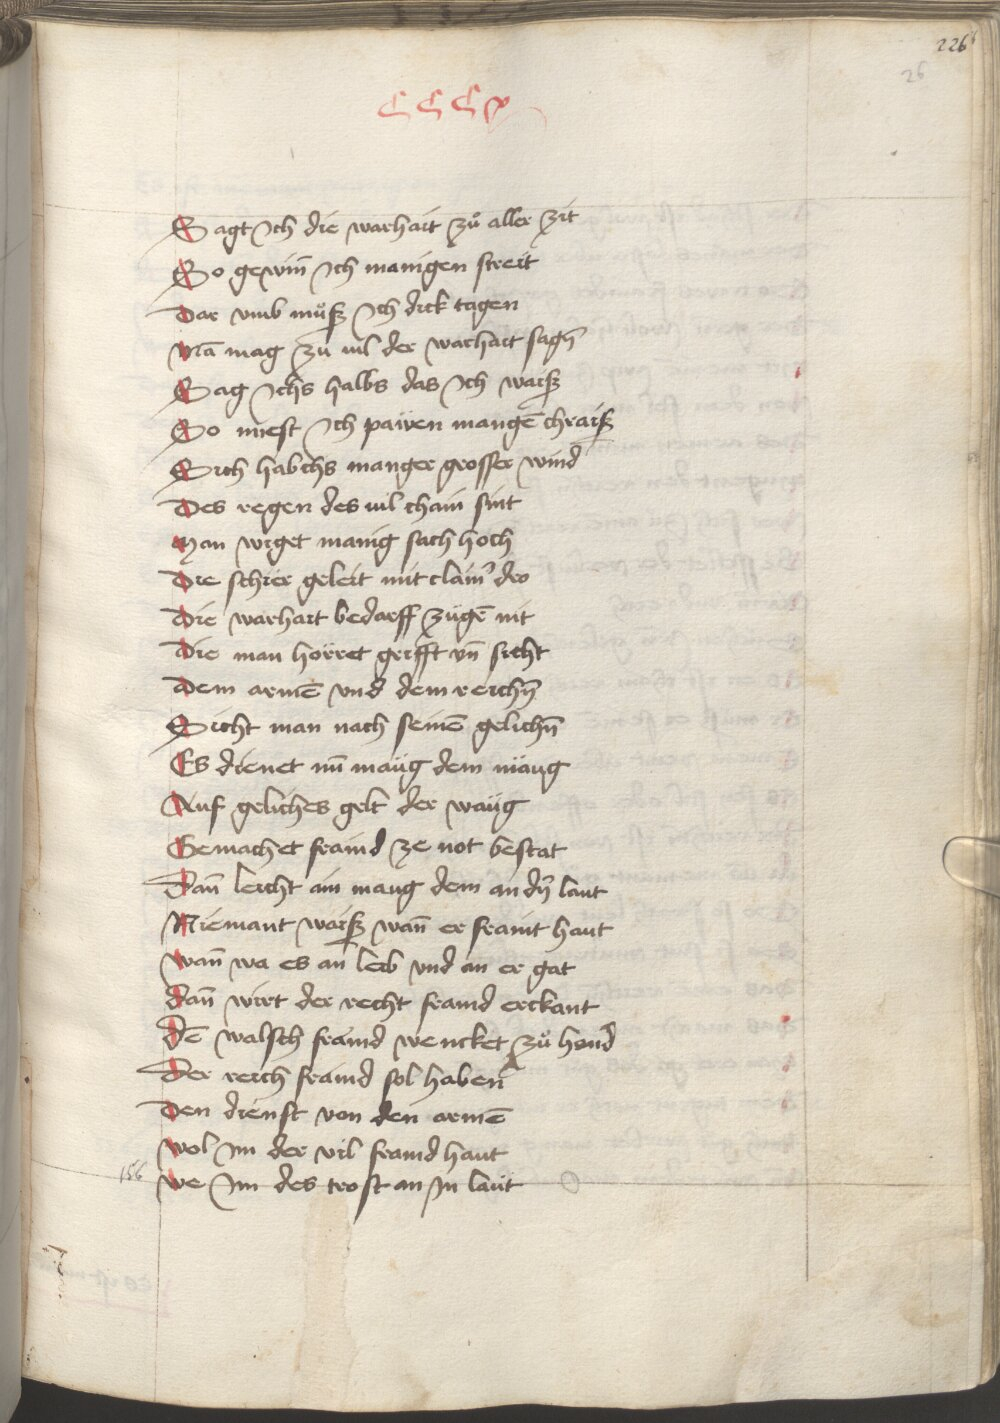 226
26
CCCX
Sagt ich die warhait zů aller zit
So gewiñ ich manigen streit
Dar vmb můsz ich dick tagen
Mā mag zu vil der warhait sagñ
Sag ichs halbs das ich waisz
So miest ich pawen mangē chraisz
Sich habchs manger grosser wind
Des regen des vil chain sint
Man wiget manig sach hoch
Die schier geleit mit clainer dro
Die warhait bedarff zügē nit
Die man höret grifft vñ sicht
Dem armē vnd dem reichñ
Sicht man nach seinē gelichñ
Es dienet nũ maüg dem maüg
Auf geliches gelt der waüg
Gemachet fraind ze not bestat
Dañ leicht ain maug dem andern laut
Niemant waisz wañ er fraint haut
wañ wa es an leib vnd an er gat
dañ wirt der recht fraind erckant
dē walsch fraind wencket zů hand
Der reich fraind sol haben
Den dienst von den armē
wol im der vil fraind haut
we im des trost an in laüt
156